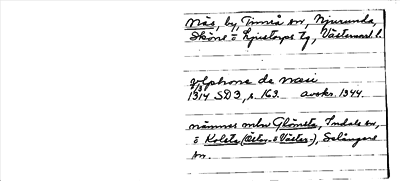 Näs, by, Timrå sn, Njurunda,
Sköns o Ljustorps tg, Västernorrl. l.
olphone de næsi
1314 SD 3, s. 163. avskr. 1344.
nämnes mln Glömsta, Indals sn,
o Kolsta (Öster- o Väster-), Selångers
sn.